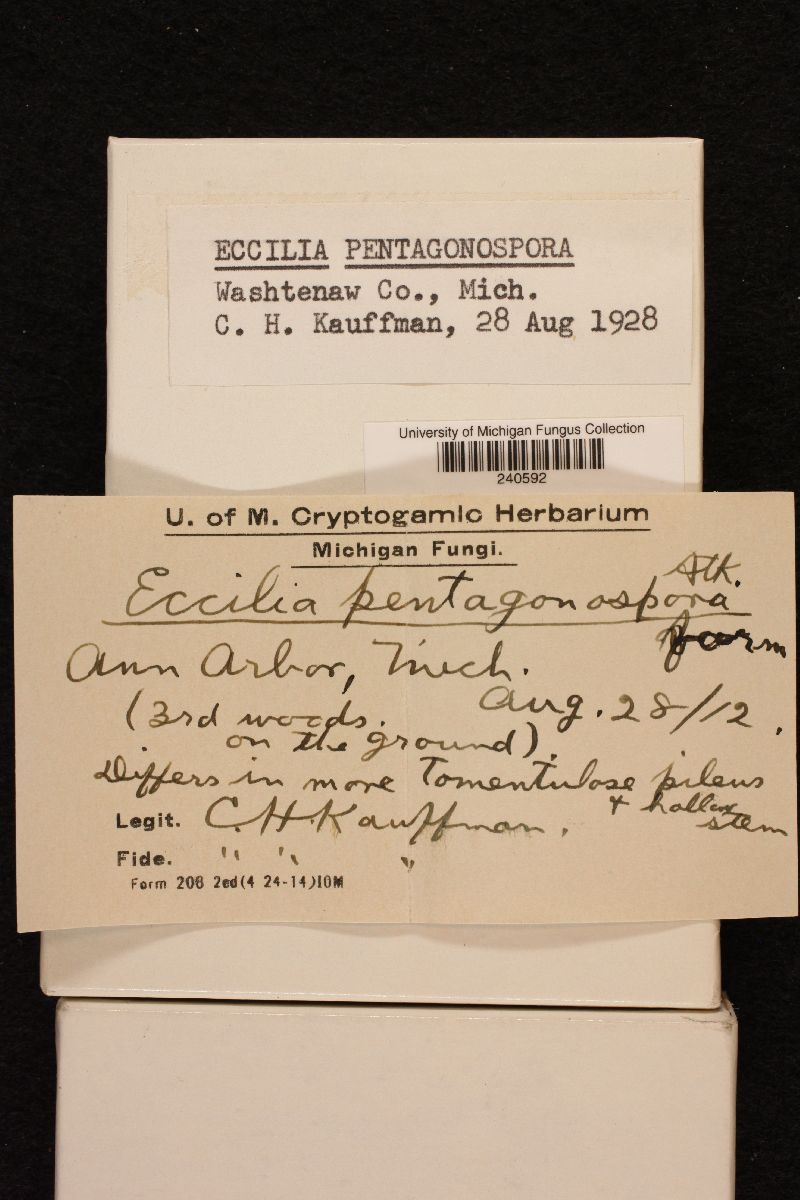 ECCILIA PENTAGONOSPORA
Washtenaw Co., Mich.
C. H. Kauffman, 28 Aug 1928
University of Michigan Fungus Collection
240592
U. of M. Cryptogamic Herbarium
Michigan Fungi.
Eccilia pentagonospora Atk.
form
Ann Arbor, Mich.
Aug. 28/12.
(3rd woods.
on the ground).
Differs in more tomentulose pileus
+ hollow
stem
Legit. C.H.Kauffman.
Fide. " " "
Form 208 2ed(4 24-14)10M